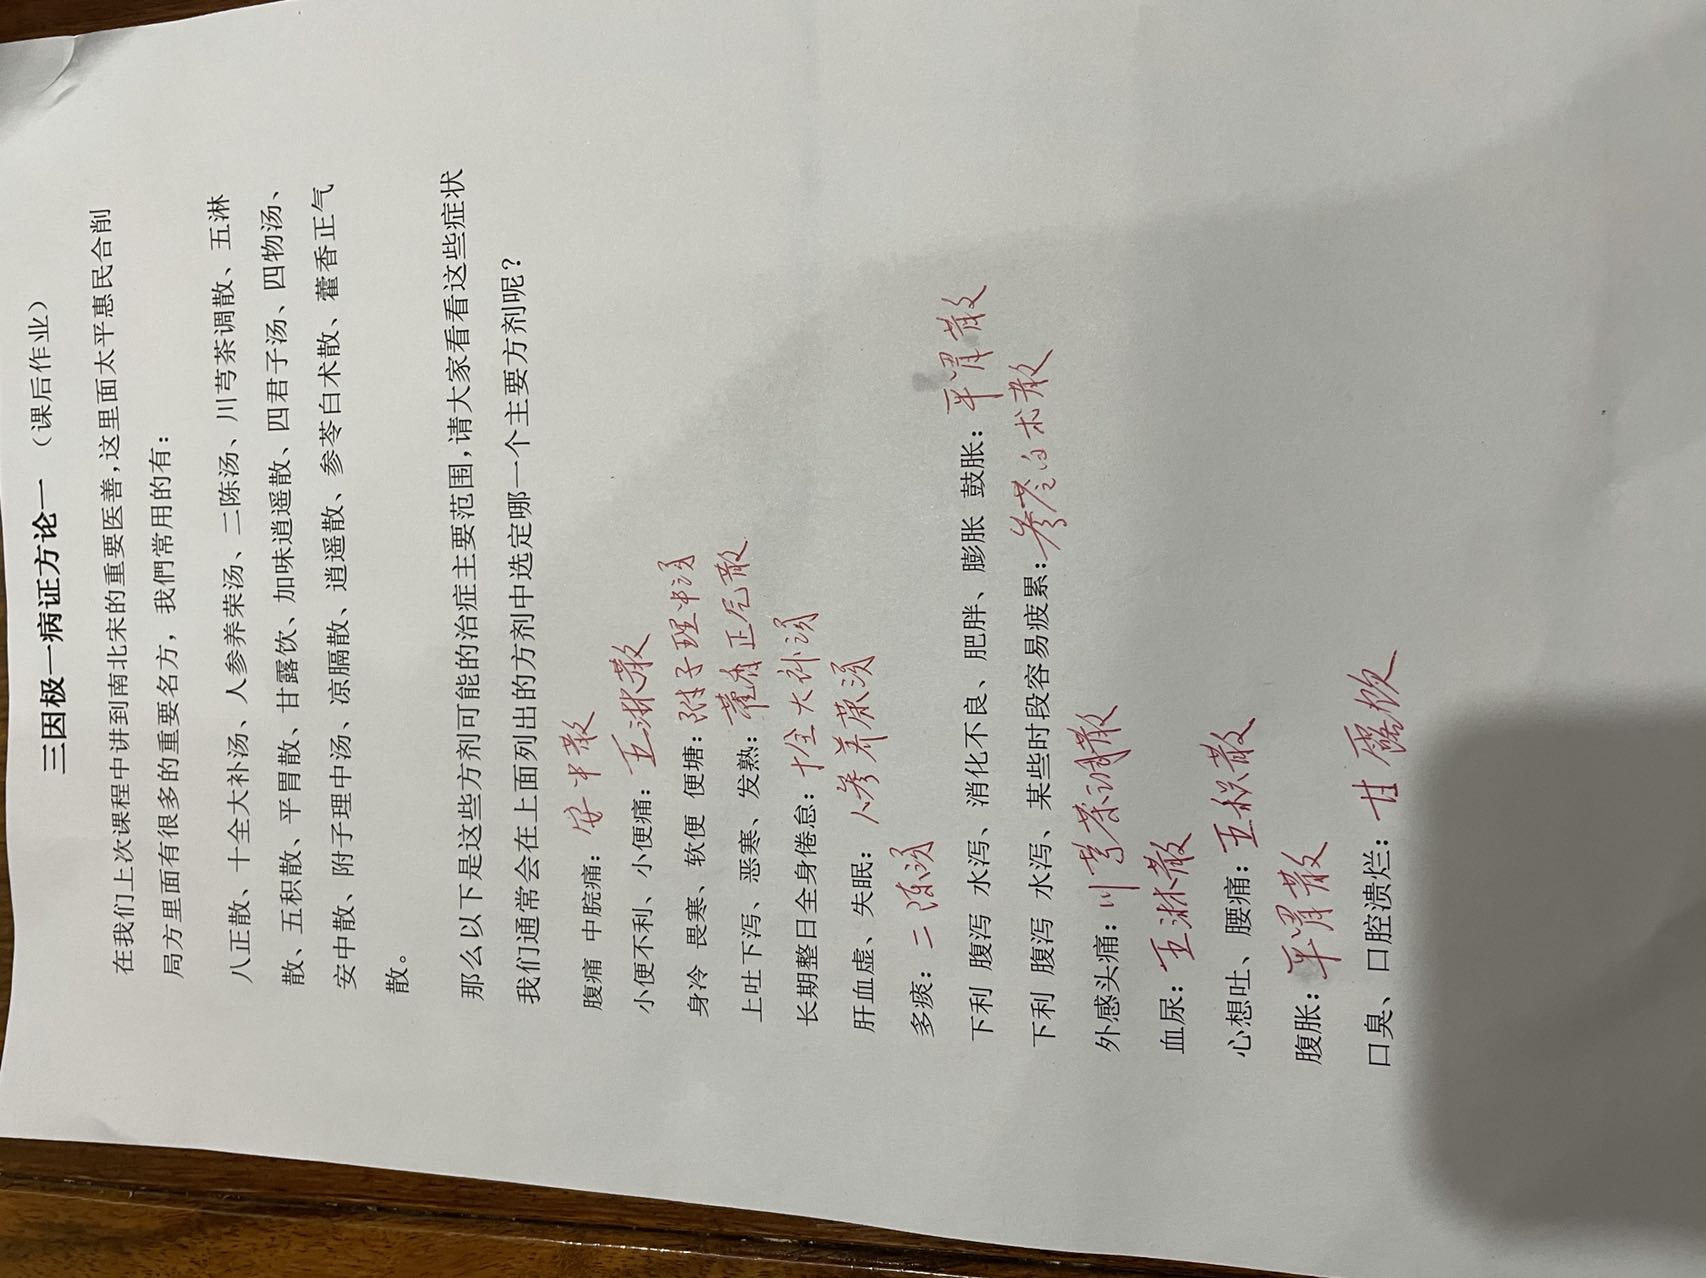 三因极一病证方论一（课后作业）
在我们上次课程中讲到南北宋的重要医善，这里面太平惠民合削
局方里面有很多的重要名方，我們常用的有：
八正散、十全大补汤、人参养荣汤、二陈汤、川芎茶调散、五淋
散、五积散、平胃散、甘露饮、加味逍遥散、四君子汤、四物汤、
安中散、附子理中汤、凉膈散、逍遥散、参苓白术散、藿香正气
散。
那么以下是这些方剂可能的治症主要范围，请大家看看这些症状
我们通常会在上面列出的方剂中选定哪一个主要方剂呢？
腹痛 中脘痛：安中散
小便不利、小便痛：五淋散
身冷 畏寒、软便 便塘：附子理中汤
上吐下泻、恶寒、发熟：藿香正气散
长期整日全身倦怠：十全大补汤
肝血虚、失眠：人参养荣汤
多痰：二陈汤
下利 腹泻 水泻、消化不良、肥胖、膨胀 鼓胀：平胃散
下利 腹泻 水泻、某些时段容易疲累：参苓白术散
外感头痛：川芎茶调散
血尿：五淋散
心想吐、腰痛：五积散
腹胀：平胃散
口臭、口腔溃烂：甘露饮